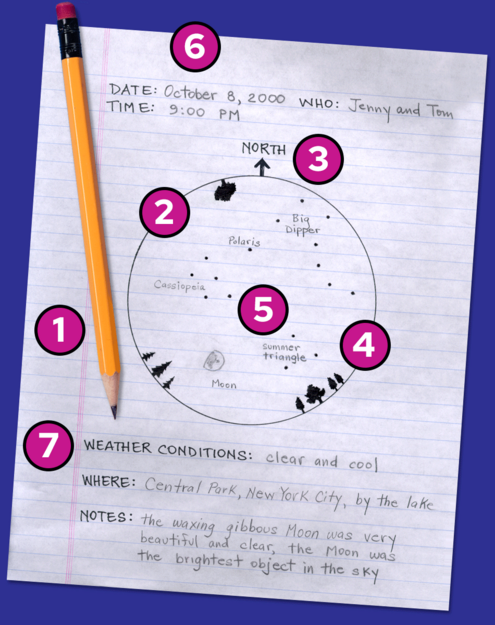 6
DATE: October 8, 2000 WHO: Jenny and Tom
TIME: 9:00 PM
NORTH
3
2
Big
Dipper
Polaris
Cassiopeia
5
1
summer
triangle
4
Moon
7
WEATHER CONDITIONS: clear and cool
WHERE: Central Park, New York City, by the lake
NOTES: the waxing gibbous Moon was very
beautiful and clear, the Moon was
the brightest object in the sky